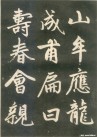 山年應龍
成甫扁曰
壽春會親